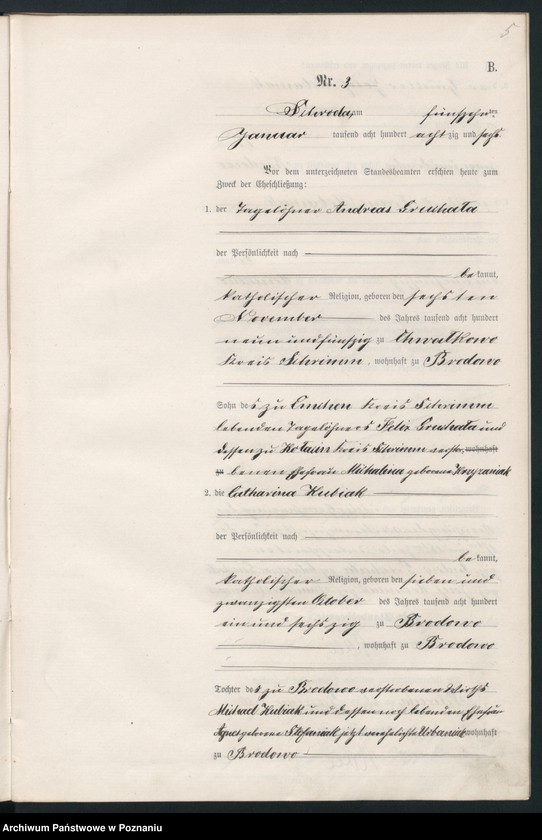 5
B.
Nr. 3
Schroda, am fünfzehnten
Januar tausend acht hundert achtzig und sechs
Vor dem unterzeichneten Standesbeamten erschien heute zum
Zweck der Eheschließung:
1. der Tagelöhner Andreas
der Persönlichkeit nach
bekannt,
katholischer Religion, geboren den sechsten
November des Jahres tausend acht hundert
neun und fünfzig zu Chwalkowo
Kreis Schrimm, wohnhaft zu Brodowo
Sohn des zu Emchen Kreis Schrimm
lebenden Tagelöhners Felix und
dessen zu Kreis Schrimm verstor, wohnhaft
zu benen Ehefrau Michalina geborene
2. die Catharina Kubiak
der Persönlichkeit nach
bekannt,
katholischer Religion, geboren den sieben und
zwanzigsten October des Jahres tausend acht hundert
ein und sechszig zu Brodowo
, wohnhaft zu Brodowo
Tochter des zu Brodowo verstorbenen Wirths
Michael Kubiak und dessen noch lebenden Ehefrau
Agnes geborene Stefaniak jetzt verehelichte Urbaniak wohnhaft
zu Brodowo
Archiwum Państwowe w Poznaniu
szukajwarchiwach.gov.pl